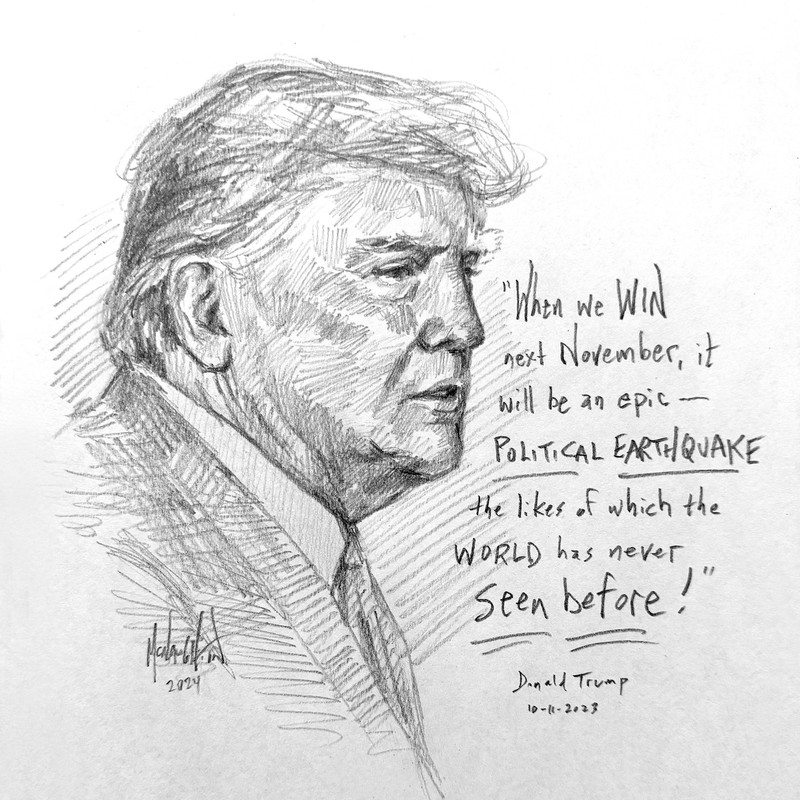 "When we WIN
next November, it
will be an epic —
POLITICAL EARTHQUAKE
the likes of which the
WORLD has never
seen before!"
Donald Trump
10-11-2023
2024